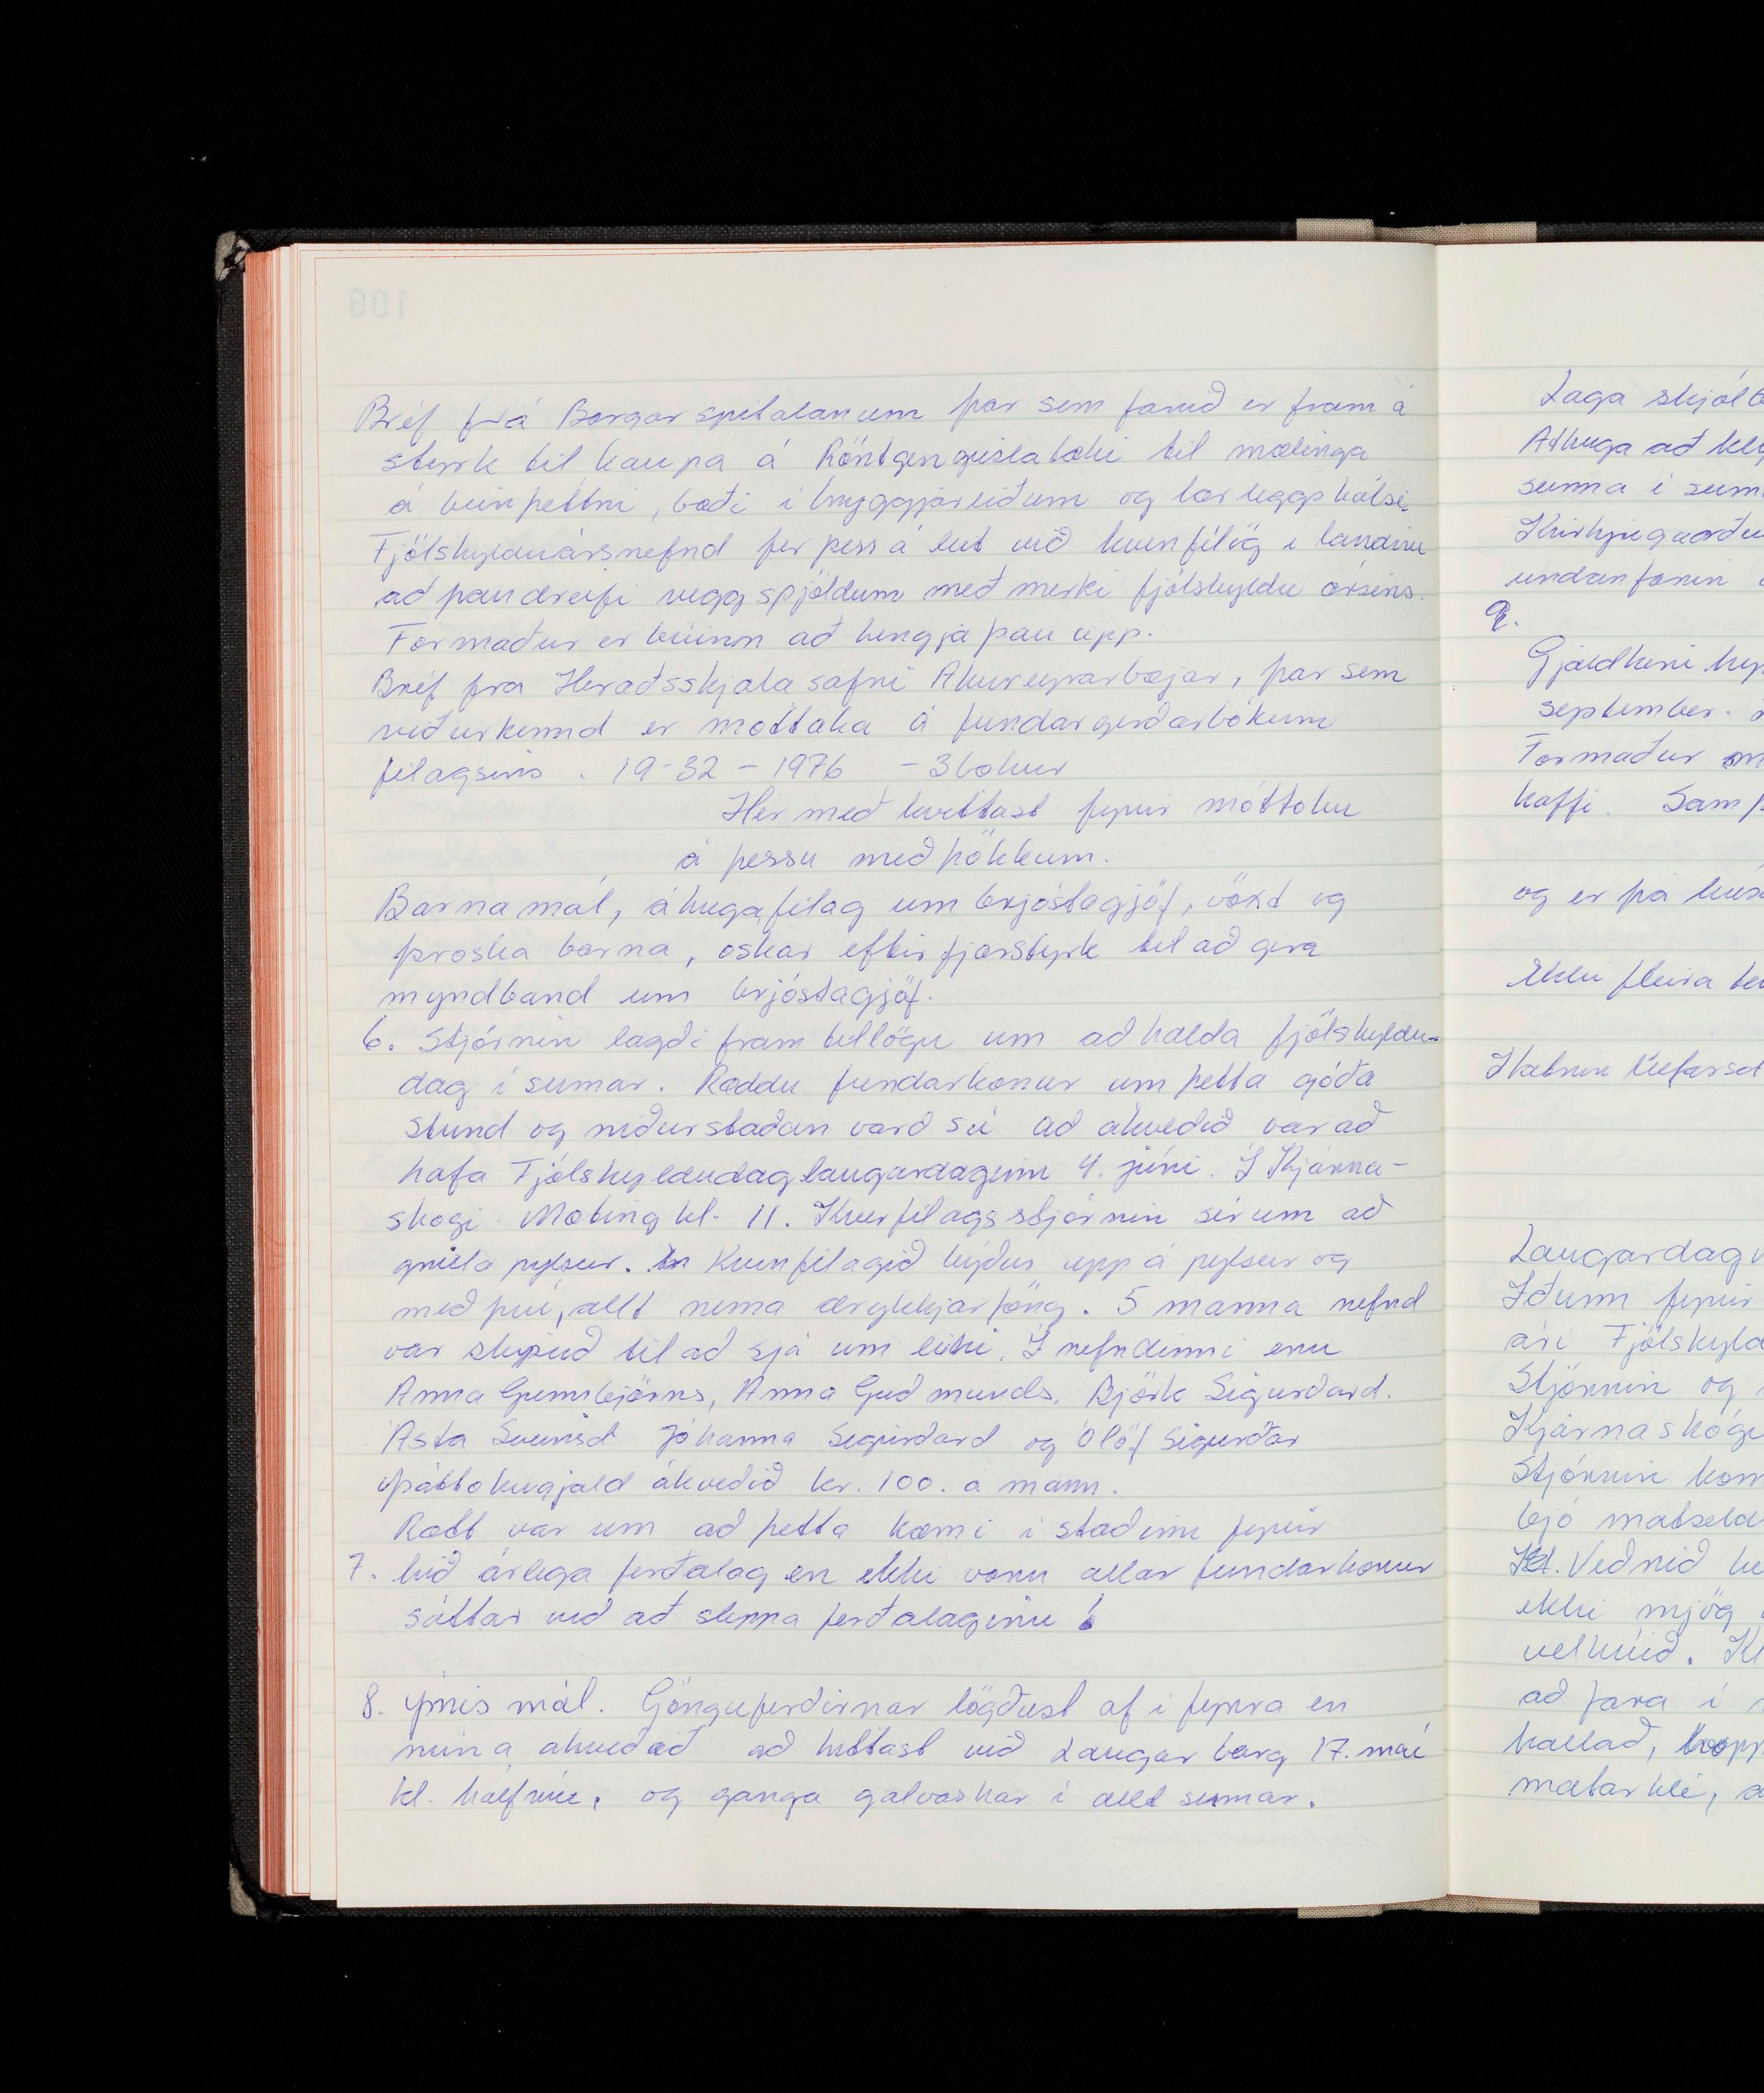 Bréf frá Borgarspítalanum þar sem farið er fram á
styrk til kaupa á Röntgengeislatæki til mælinga
á beinþéttni, bæði í hryggjarliðum og lærleggshálsi.
Fjölskylduársnefnd fer þess á leit við kvenfélög í landinu
að þau dreifi veggspjöldum með merki fjölskyldu ársins.
Formaður er búinn að hengja þau upp.
Bréf frá Heraðsskjalasafni Akureyrarbæjar, þar sem
viðurkennd er mottaka á fundargerðarbókum
félagsins. 19-32 - 1976 - 3 bækur
Hér með kvittast fyrir móttöku
á þessu með þökkum.
Barnamál, áhugafélag um brjóstagjöf, vöxt og
þroska barna, oskar eftir fjárstyrk til að gera
myndband um brjóstagjöf.
6. Stjórnin lagði fram tillögu um að halda fjölskyldu-
dag í sumar. Ræddu fundarkonur um þetta góða
stund og niðurstaðan varð sú að ákveðið var að
hafa Fjölskyldudag laugardaginn 4. júní. Í Kjarna-
skogi. Mæting kl. 11. Kvenfélagsstjórnin sér um að
grilla pylsur. Kvenfélagið býður upp á pylsur og
með því, allt nema drykkjarföng. 5 manna nefnd
var skipuð til að sjá um leiki. Í nefndinni eru
Anna Gunnbjörns, Anna Guðmunds, Björk Sigurðard.
Ásta Sveinsd Jóhanna Sigurðard og Ólöf Sigurðar
Þáttökugjald ákveðið kr. 100. a mann.
Rætt var um að þetta kæmi í staðinn fyrir
7. hið árlega ferðalag en ekki voru allar fundarkonur
sáttar við að sleppa ferðalaginu!
8. Ýmis mál. Gönguferðirnar lögðust af í fyrra en
núna ákveðið að hittast við Laugarborg 17. maí
kl. hálfníu, og ganga galvaskar í allt sumar.
Laga skjólb
Athuga að
sunna í sum
Kirkjugarðu
undanfarin
9.
Gjaldkeri
september.
Formaður
kaffi. Sam
og er þá
Ekki fleira
Laugardag
Iðunn fyrir
ári Fjölskyld
Stjórnin og
Kjarnaskógi
Stjórnin kom
bjó matseld
Veðrið
ekki mjög
velbúið.
að fara í
kallað,
matarhlé,